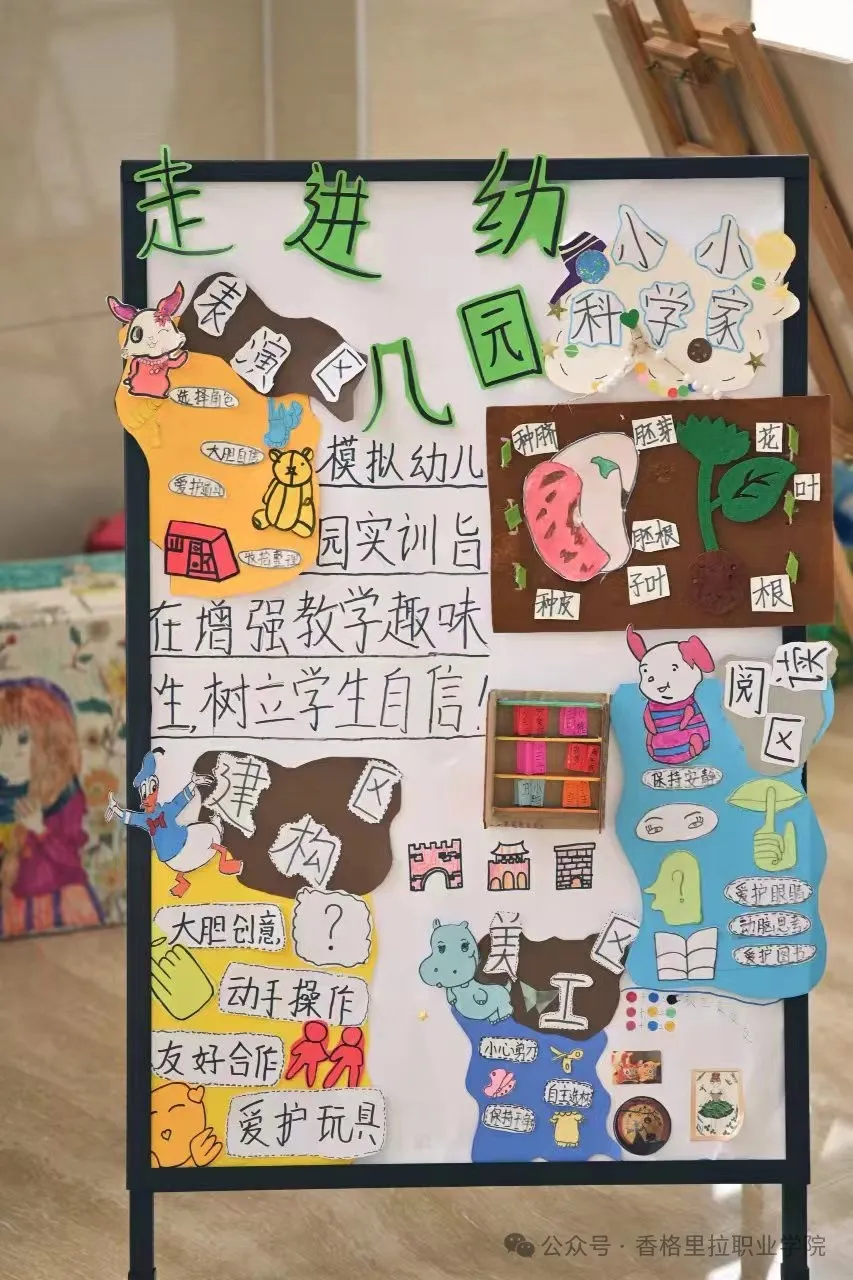 走进幼
儿园
小小
科学家
表演区
选择角色
大胆自信
爱护
收拾整理
模拟幼儿
园实训旨
在增强教学趣味
性,树立学生自信!
种脐
胚芽
花
叶
胚根
子叶
种皮
根
阅读
区
保持安静
?
爱护眼睛
动脑思考
爱护图书
建构区
大胆创意
?
动手操作
友好合作
爱护玩具
美工区
小心剪刀
保持干净
公众号·香格里拉职业学院